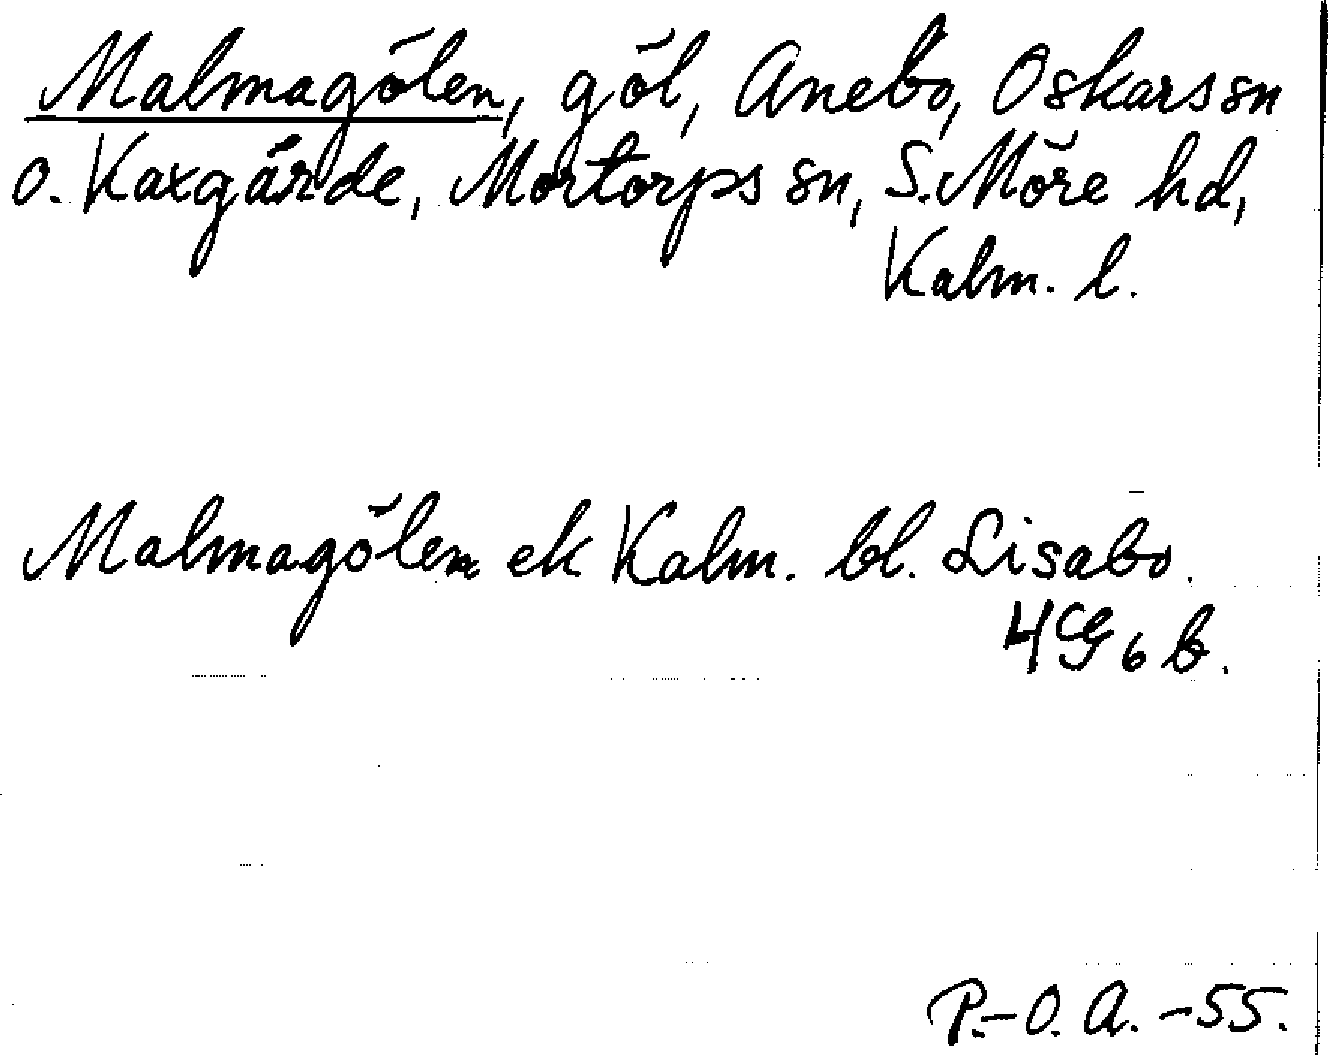 Malmagölen, göl, Anebo, Oskars sn
o. Kaxgärde, Mortorps sn, S. Möre hd,
Kalm. l.
Malmagölen ek Kalm. bl. Lisabo.
4G 6 b.
P.-O. A. -55.